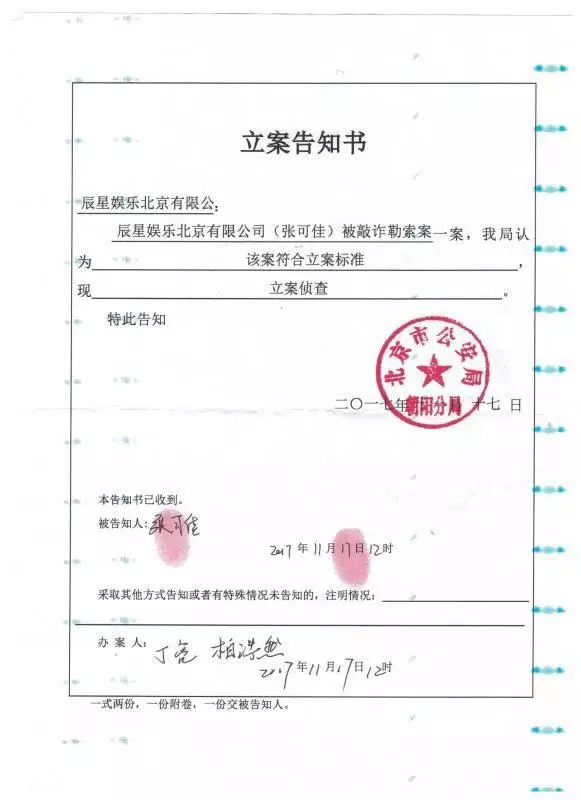 立案告知书
辰星娱乐北京有限公:
辰星娱乐北京有限公司（张可佳）被敲诈勒索案一案，我局认
为 该案符合立案标准 ，
现 立案侦查 。
特此告知
北京市公安局
朝阳分局
二〇一七年十一月十七日
本告知书已收到。
被告知人: 张可佳
2017年11月17日12时
采取其他方式告知或者有特殊情况未告知的，注明情况：
办案人: 丁亮 柏浩然
2017年11月17日12时
一式两份，一份附卷，一份交被告知人。